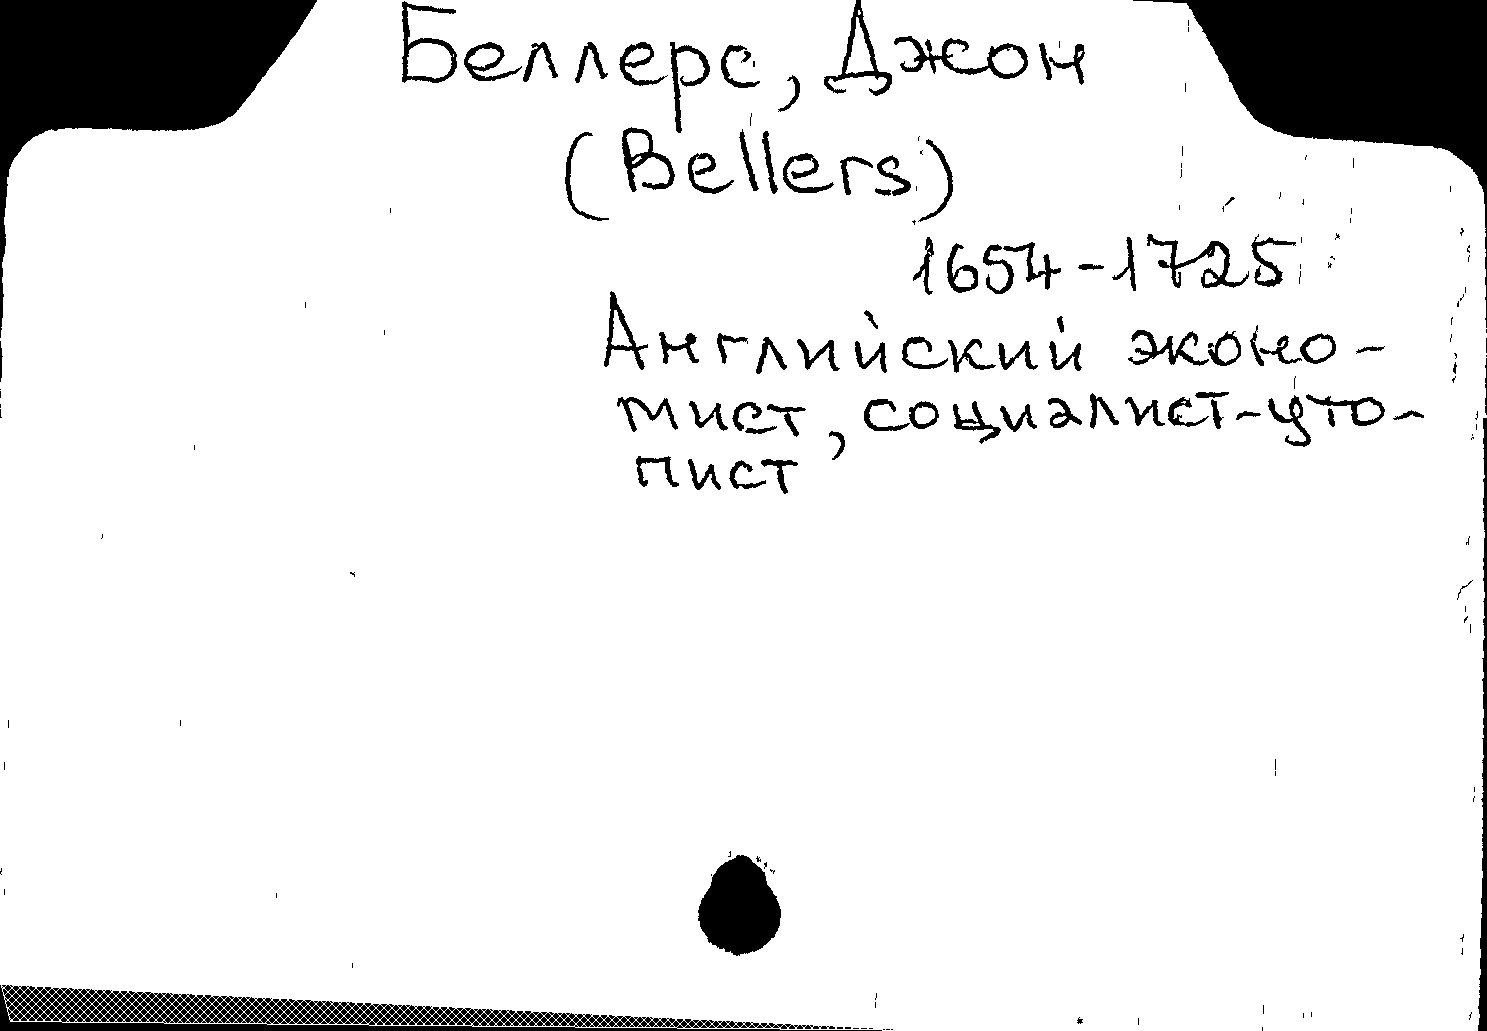 Беллерс, Джон
(Bellers)
1654-1725
Английский эконо-
мист, социалист-уто-
пист